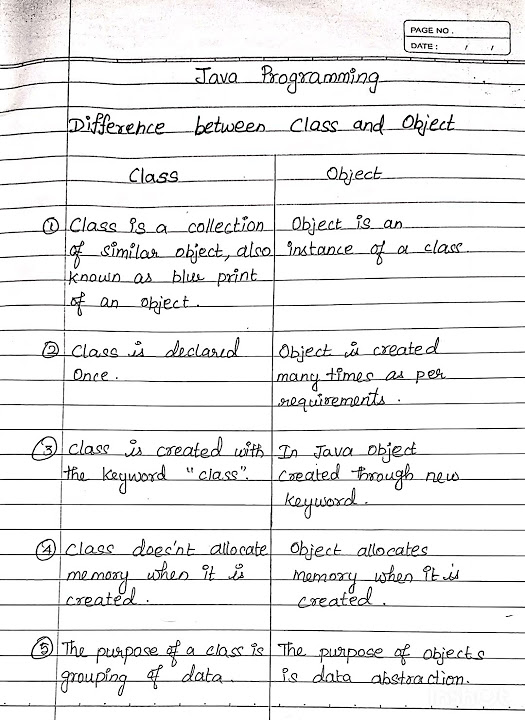 PAGE NO.
DATE: / /
Java Programming
Difference between Class and Object
Class
Object
① Class is a collection
of similar object, also
known as blue print
of an object.
Object is an
instance of a class.
② Class is declared
Once.
Object is created
many times as per
requirements.
③ Class is created with
the keyword "class".
In Java object
created through new
keyword.
④ Class does'nt allocate
memory when it is
created.
Object allocates
memory when it is
created.
⑤ The purpose of a class is
grouping of data.
The purpose of objects
is data abstraction.